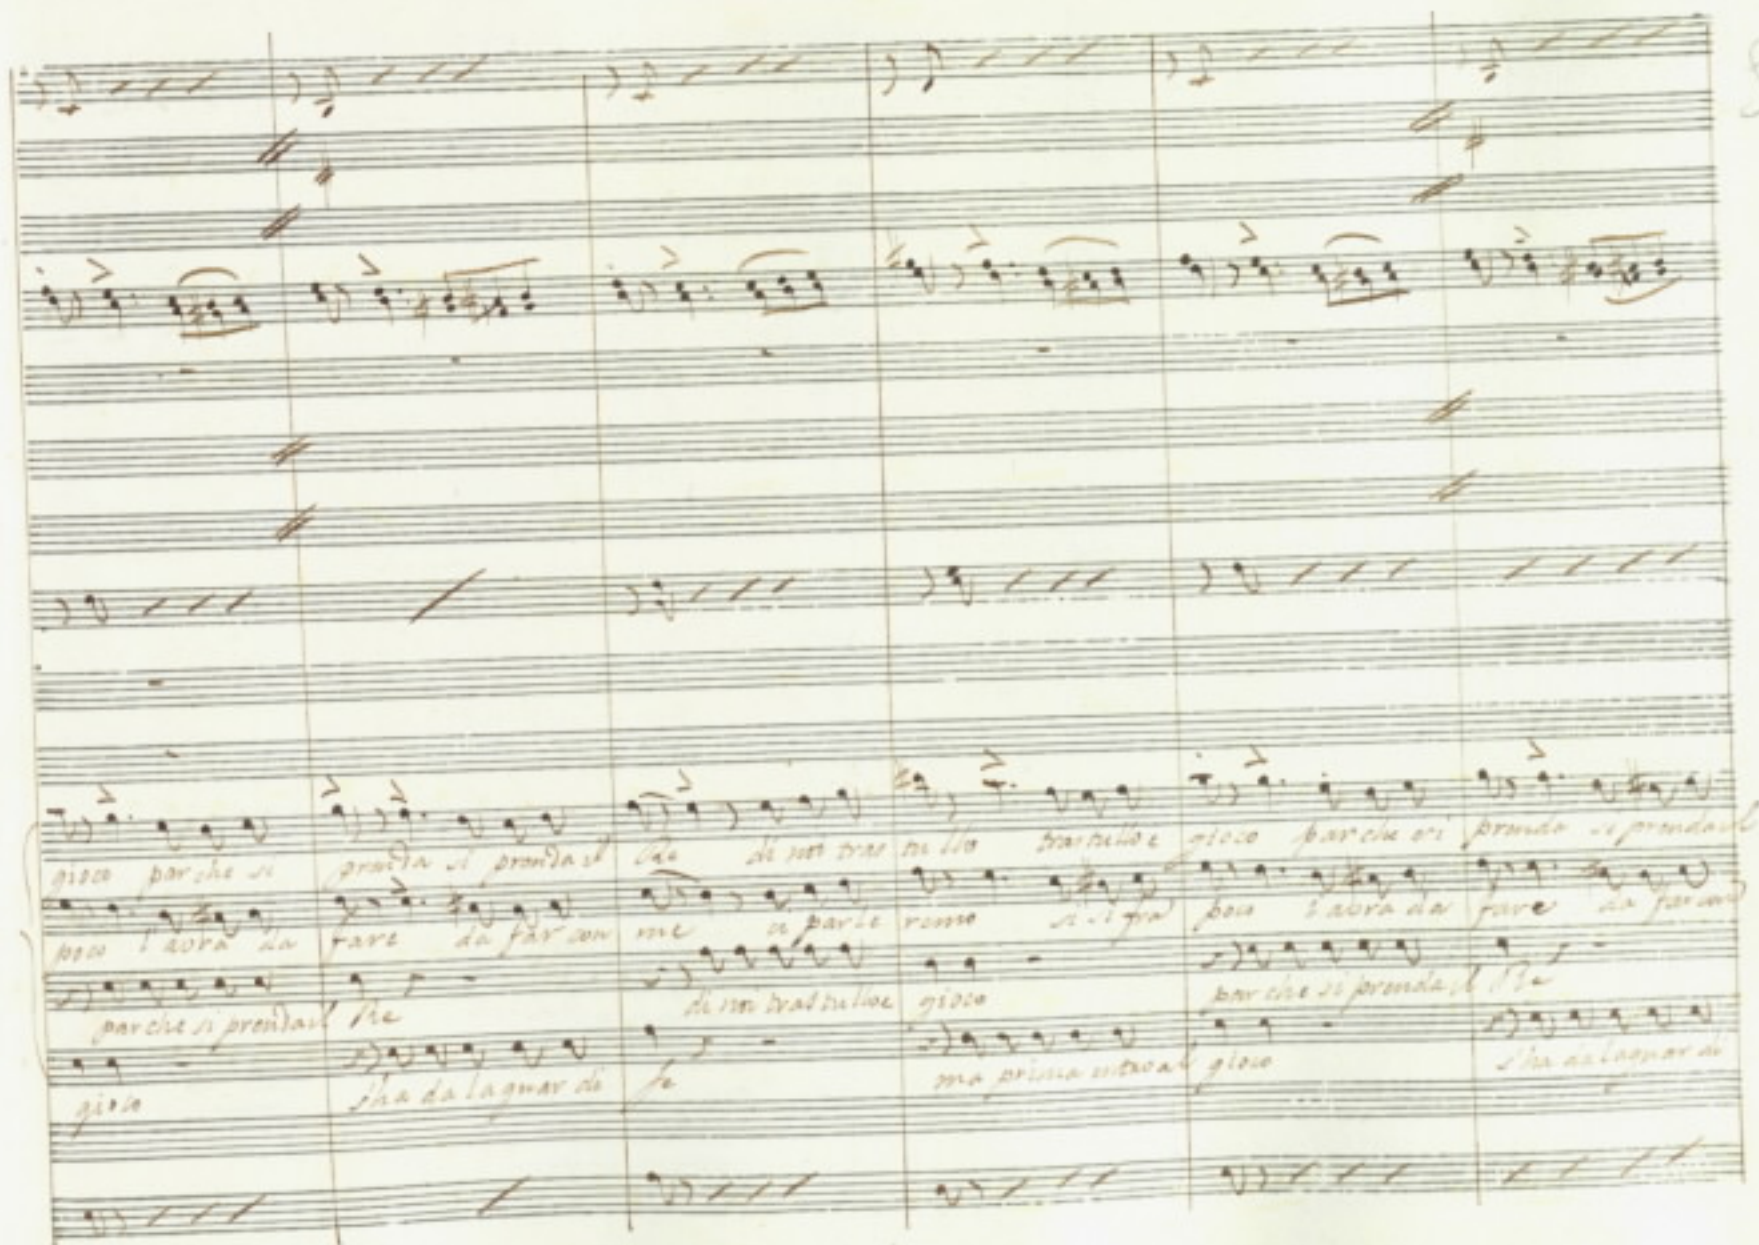 gioco par che si prenda si prenda il Re di noi tras tullo trastullo e gioco par che si prenda si prenda il
poco l'avrà da fare da far con me ci parle remo si si fra poco l'avrà da fare da far con
par che si prenda il Re di noi trastullo e gioco par che si prenda il Re
gioco s'ha da lagnar di se ma prima gioco s'ha da lagnar di